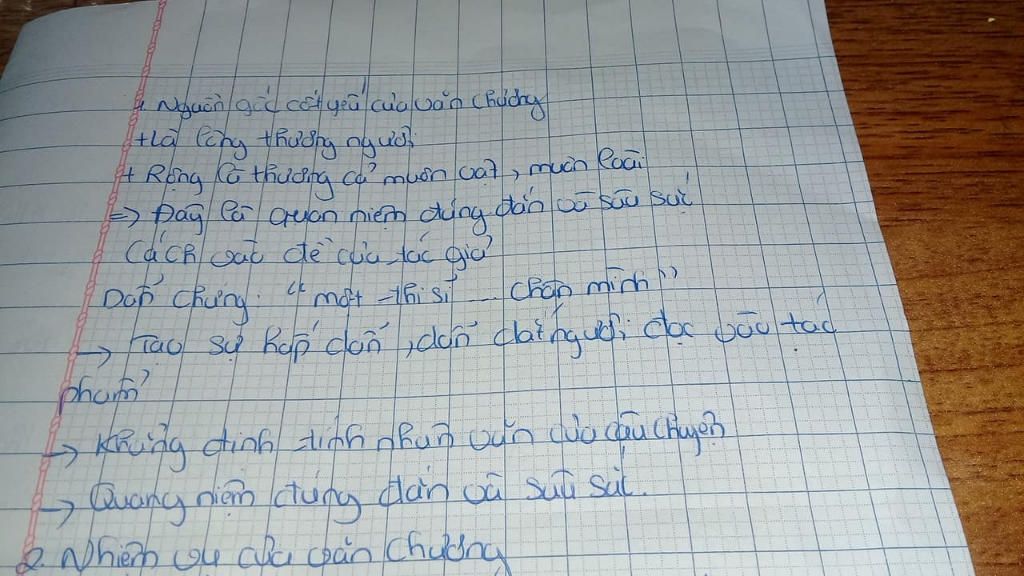 1. Nguồn gốc cốt yếu của văn chương
+ Là lòng thương người
+ Rộng là thương cả muôn vật, muôn loài
=> Đây là quan niệm đúng đắn và sâu sắc
Cách vào đề của tác giả
Dẫn chứng: "một thi sĩ ... chân mình"
→ Tạo sự hấp dẫn, dẫn dắt người đọc vào tác
phẩm
→ Khẳng định tính nhân văn của câu chuyện
→ Quang niệm đúng đắn và sâu sắc.
2. Nhiệm vụ của văn chương